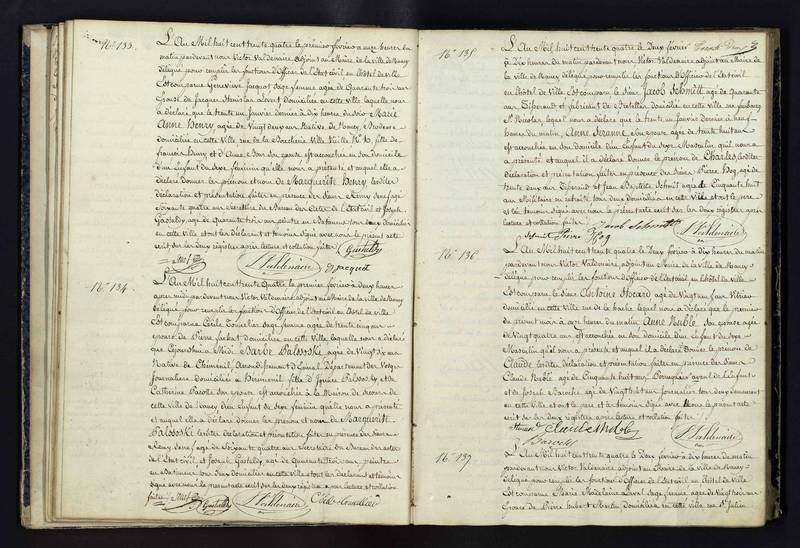 No 133.
L'An Mil huit cent trente quatre le premier février à onze heures du
matin pardevant nous Victor Valdenaire adjoint au Maire de la ville de Nancy
délégué pour remplir les fonctions d'Officier de l'Etat civil en l'hôtel de ville
Est comparue Geneviève Jacquot Sage femme agée de Quarante trois ans
Epouse de Jacques Stanislas domiciliée en cette ville laquelle nous
a déclaré que le trente un Janvier dernier à dix heures du soir Marie
Anne Henry agée de Vingt deux ans Native de Nancy, Brodeuse
domiciliée en cette Ville rue de la Boucherie Ville Vieille No 10, fille de
François Henry et d'Anne est accouchée en son domicile
d'un Enfant du Sexe féminin qu'elle nous a présenté et auquel elle a
déclaré donner le prénom et nom de Marguerite Henry lesdites
déclaration et présentation faites en présence des Sieurs Remy Senef agé
Soixante quatre ans Secrétaire du Bureau des Actes de l'Etat civil et Joseph
Gastaldy, agé de Quarante trois ans peintre en Batimens tous deux domiciliés
en cette ville et ont les déclarant et témoins signé avec nous le présent acte
écrit sur les deux régistres après lecture et collation faites.
Gastaldy
Senef
Valdenaire
Jacquot
No 134.
L'An Mil huit cent trente Quatre le premier février à deux heures
après midi pardevant nous Victor Valdenaire adjoint au Maire de la ville de Nancy
délégué pour remplir les fonctions d'Officier de l'Etat civil en l'hôtel de ville
Est comparue Cécile Sage femme agée de trente cinq ans
épouse de Pierre domiciliée en cette Ville, laquelle nous a déclaré
que Cejourd'hui à Midi Barbe Balsoski agée de Vingt six ans
Native de Arrondissement d'Epinal Département des Vosges
Journalière domiciliée à fille d'Ignace Balsosky et de
Catherine son épouse est accouchée à la Maison de Secours de
cette ville de Nancy d'un Enfant du Sexe féminin qu'elle nous a présenté
et auquel elle a déclaré donner les prénom et nom de Marguerite
Balsoski lesdites déclaration et présentation faites en présence des Sieurs
Remy Senef agé de Soixante quatre ans Secrétaire du Bureau des actes
de l'Etat civil, et Joseph Gastaldy agé de Quarante trois ans peintre
en Batimens tous deux domiciliés en cette ville et ont les déclarant et témoins
signé avec nous le présent acte écrit sur les deux régistres, après lecture et collation
faites.
Senef
Gastaldy
Valdenaire
Cécile
No 135
L'An Mil huit cent trente quatre le Deux février
à Dix heures du matin pardevant nous Victor Valdenaire adjoint au Maire
de la ville de Nancy délégué pour remplir les fonctions d'Officier de l'Etat civil
en l'hôtel de Ville Est comparu le Sieur Jacob Schmitt agé de Quarante
ans Tisserand et fabricant de Bretelles domicilié en cette ville au faubourg
St Nicolas, lequel nous a déclaré que le trente un janvier dernier à neuf
heures du matin, Anne Seranne, son épouse agée de trente huit ans
est accouchée en son domicile d'un Enfant du Sexe Masculin qu'il nous
a présenté et auquel il a déclaré donner le prénom de Charles lesdites
déclaration et présentation faites en présence des Sieurs Pierre Hog, agé de
trente deux ans Tisserand et Jean Baptiste Schmit agé de Cinquante huit
ans Militaire en retraite tous deux domiciliés en cette ville et ont le père
et les témoins signé avec nous le présent acte écrit sur les deux régistres, après
lecture et collation faites.
Jacob Schmitt
Schmit Pierre Hog
Valdenaire
No 136
L'An Mil huit cent trente quatre le Deux février à dix heures du matin
pardevant nous Victor Valdenaire, adjoint au Maire de la Ville de Nancy
délégué pour remplir les fonctions d'Officier de l'Etat civil en l'hôtel de Ville
Est comparu le Sieur Antoine agé de Vingt neuf ans Vitrier
domicilié en cette Ville rue de la hache lequel nous a déclaré que le premier
du présent mois à heures du matin, Anne Hablé Son épouse agée
de Vingt quatre ans est accouchée en son domicile d'un Enfant du Sexe
Masculin qu'il nous a présenté et auquel il a déclaré donner le prénom de
Claude, lesdites déclaration et présentation faites en présence des Sieurs
Claude Hablé, agé de Cinquante huit ans ayeul de l'Enfant
et de Joseph Baroche agé de Vingt huit ans Journalier tous deux demeurant
en cette Ville et ont le père et les témoins signé avec Nous le présent acte
écrit sur les deux régistres après lecture et collation faites.
Claude Hablé
Valdenaire
No 137
L'An Mil huit cent trente quatre le Deux février à dix heures du matin
pardevant nous Victor Valdenaire adjoint au Maire de la Ville de Nancy
délégué pour remplir les fonctions d'Officier de l'Etat civil en l'hôtel de Ville
Est comparue Marie Madelaine Sage femme, agée de Vingt huit ans
Epouse de Pierre Hubert Martin domiciliée en cette ville rue St Julien